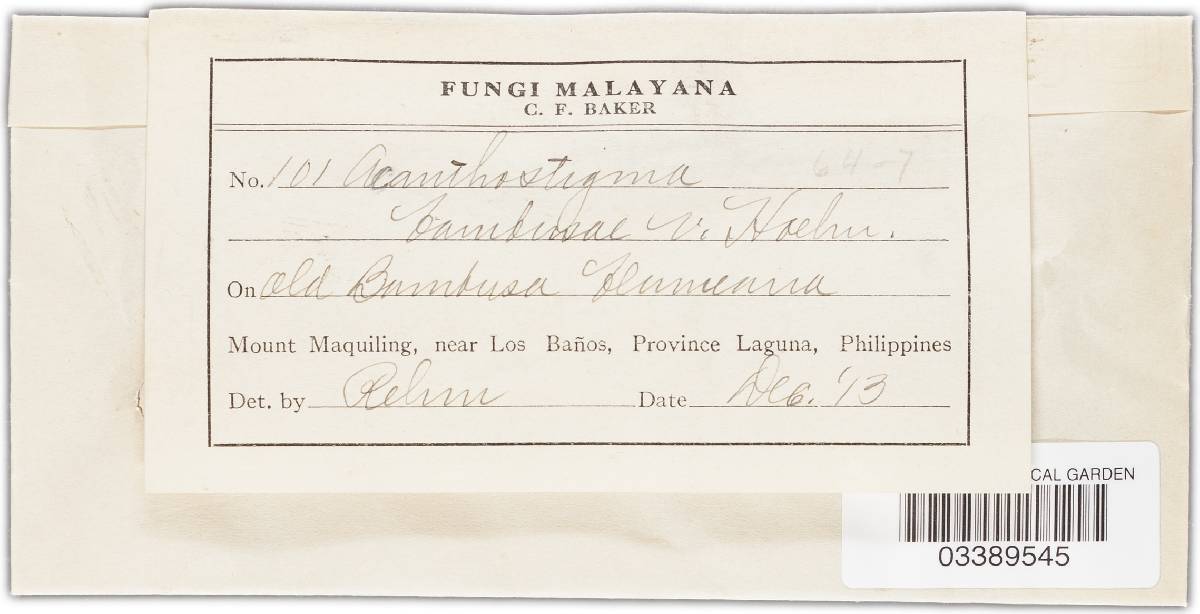 FUNGI MALAYANA
C. F. BAKER
No. 101 Acanthostigma 64-7
bambusae v. Hoehn.
On old Bambusa blumeana
Mount Maquiling, near Los Baños, Province Laguna, Philippines
Det. by Rehm Date Dec. '13
CAL GARDEN
03389545